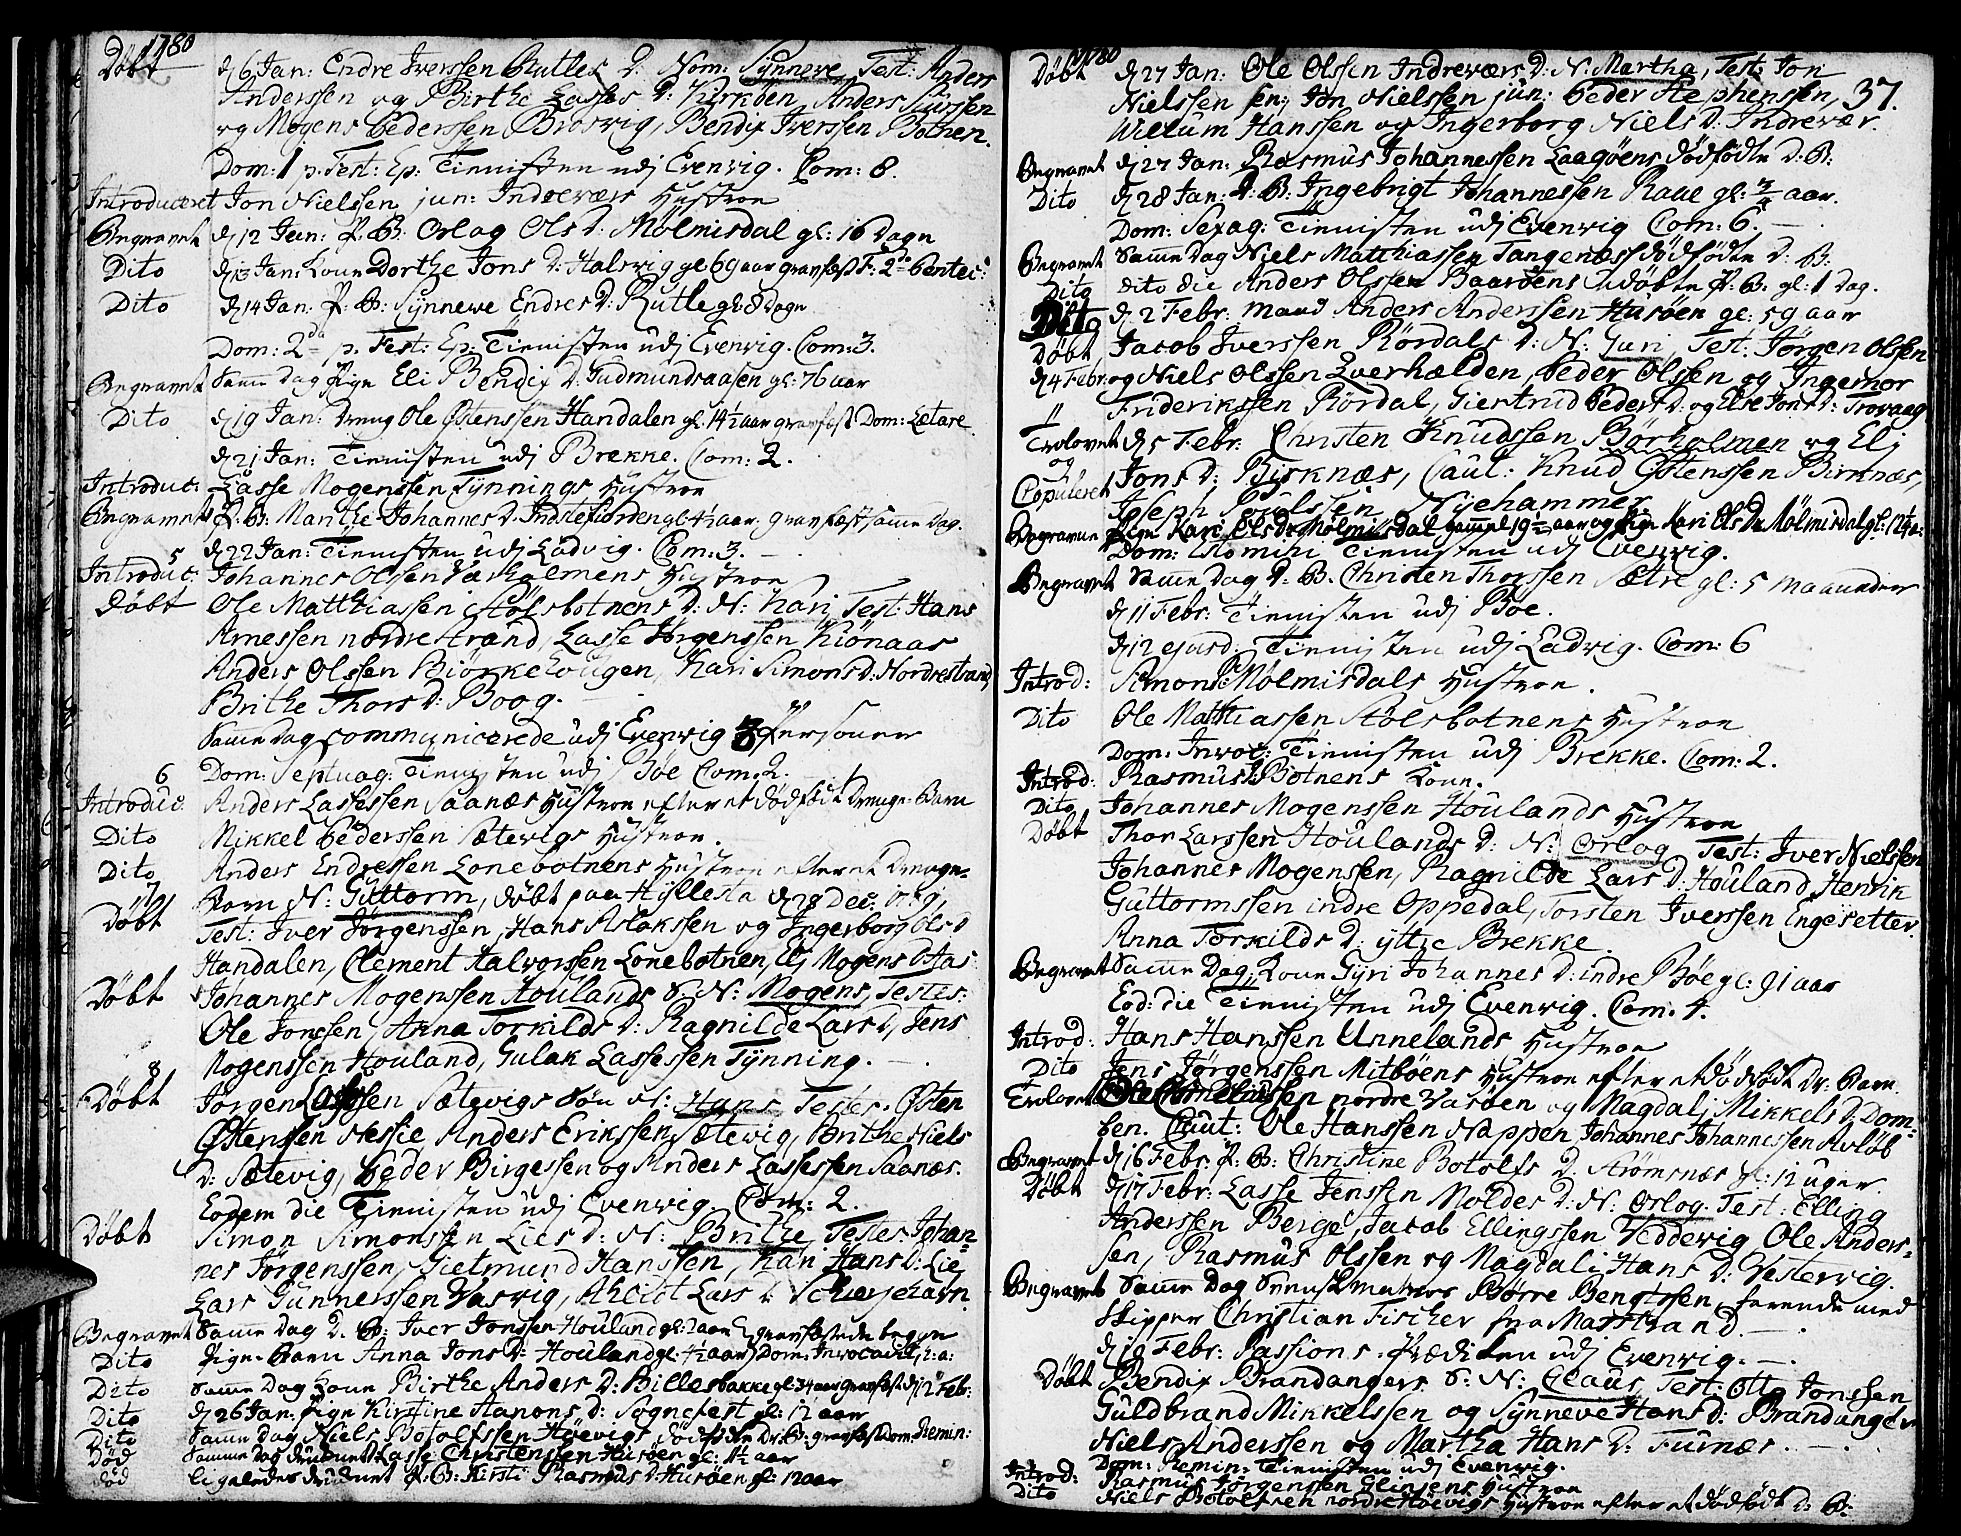 1780
Döbt d 6 Jan: Endre Iverssen Rutles D: Nom: Synneve Test: Anders
Anderssen og Birthe Lasses D: Kirkøen, Anders
og Mogens Pederssen Brosvig, Bendix Iverssen Botnen.
Dom: 1 p. Fest: Ep: Tienisten udj Evenvig. Com: 8.
Introduceret Jon Nielssen jun: Indreværs Hustroe
Begravet d 12 Jan: P. B. Orlog Ols D: Mølmisdal gl: 16 Dage
Dito d 13 Jan: Kone Dorthe Jons D: Halsvig gl: 69 aar gravfæst F: 2de Pentec:
Dito d 14 Jan: P: B: Synneve Endres D: Rutle gl: 8 Dage
Dom: 2da p. Fest: Ep: Tienisten udj Evenvig. Com: 3.
Begravet Samme Dag Pige Eli Bendix D: Gudmundsaasen gl: 76 aar
Dito d 19 Jan: Dreng Ole Østenssen Handalen gl: 14½ aar gravfæst Dom: Lætare
d 21 Jan: Tienisten udj Brekke. Com: 2.
Introduc: Lasse Mogenssen Tynnings Hustroe
Begravet P: B: Marithe Johannes D: Indrefiorden gl: 4½ aar, gravfæst samme Dag.
5 d 22 Jan: Tienisten udj Ladvig. Com: 3.
Introduc: Johannes Olssen Vasholmens Hustroe
Döbt Ole Matthiassen Stølsbotnens D: N: Kari, Test: Hans
Arnessen nordre strand, Lasse Jørgenssen Kiönaas
Anders Olssen Biørkehougen, Kari Simons D: Nordrestrand
Brithe Thors D: Boog.
Samme Dag communicerede udj Evenvig 3 Personer
6 Dom: Septuag: Tienisten udj Bøe Com: 2.
Introduc: Anders Lassessen Saanæs Hustroe efter et dødfødt Drenge-Barn
Dito Mikkel Pederssen Sætevigs Hustroe.
Dito Anders Endressen Lonebotnens Hustroe efter et Drenge-
7 Barn N: Guttorm, döbt paa Hyllestad d 28 Dec:
Döbt Test: Iver Jørgenssen, Hans Aslakssen og Ingerborg Ols D
Handalen, Clement Halvorssen Lonebotnen, Elj Mogens D
Döbt Johannes Mogenssen Houlands S. N: Mogens, Testes:
Ole Jonssen, Anna Torkilds D: Ragnilde Lars D, Jens
Mogenssen Houland, Gulak Lassessen Tynning.
8
Döbt Jørgen Lassen Sætevigs Søn N: Hans Testes. Østen
Østenssen Nessie Anders Erikssen Sætevig, Brithe Niels
D: Sætevig, Peder Birgessen og Anders Lassessen Saanæs.
Eodem die Tienisten udj Evenvig. Com: 2.
Döbt Simon Simonssen Lies D: N: Brithe, Testes: Johan-
nes Jørgenssen, Gietmund Hanssen, Kari Hans D: Lie,
Lars Gunnerssen Vasvig, Lars D:
Begravet Samme Dag D. B: Iver Jonssen Houland gl: 2 aar gravfæstede begge
Dito Pige-Barn Anna Jons D: Houland gl: 4½ aar Dom: Invocavit
Dito Samme Dag Kone Birthe Anders D: Billesbakke gl: 34 aar gravfæst d 12 Febr:
Dito d 26 Jan: Pige Kirstine Hanons D: Sognefest gl: 12 aar
Dito Samme Dag Niels Botolfssen Høevigs dødfødte Dr: B: gravfæst Dom: Remin:
Död Samme Dag druknet Lasse Christenssen Husøen gl: 1½ aar
död ligeledes druknet P: B: Kirsti Rasmus D: Husøen gl: 12 aar
1780
37.
Döbt d 27 Jan: Ole Olssen Indreværs D: N: Martha, Test: Jon
Nielssen sen: Jon Nielssen jun: Peder Stephenssen,
Willum Hanssen og Ingerborg Niels D: Indrevær.
Begravet d 27 Jan: Rasmus Johannessen Laagøens dødfødte D: B:
Dito d 28 Jan: D: B: Ingebrigt Johannessen Raae gl: ¾ aar.
Dom: Sexag: Tienisten udj Evenvig Com: 6.
Begravet Samme Dag Niels Matthiassen Tangenæs dødfødte D: B:
Dito dito die Anders Olssen Baarøens udøbte P: B: gl: 1 Dag.
Dito d 2 Febr: Mand Anders Anderssen Husøen gl: 59 aar
Döbt Jacob Iverssen Rördals D: N: Gun, Test: Jörgen Olssen
d 4 Febr: og Niels Olssen Qverhælden, Peder Olssen og Ingemor
Friderikssen Rördal, Giertrud Peders D: og Else Jons D: Trovaag
Trolovet d 5 Febr: Christen Knudssen Børholmen og Elj
og Jons D: Birknæs, Caut: Knud Østenssen Birknæs,
Copuleret Joseph Nyehammer
Begravne Pige Kari Els D: Mølmisdal gammel 19 aar og Pige Kari Els D: Mølmisdal gl: 12¼ a:
Dom: Esto mihi Tienisten udj Evenvig.
Begravet Samme Dag D: B. Christen Thorssen Sætre gl: 5 Maaneder
d 11 Febr: Tienisten udj Bøe.
d 12 ejusd: Tienisten udj Ladvig. Com: 6
Introd: Simon Mølmisdals Hustroe.
Dito Ole Matthiassen Stølsbotnens Hustroe
Dom: Invoc: Tienisten udj Brekke. Com: 2.
Introd: Rasmus Botnens Kone.
Dito Johannes Mogenssen Houlands Hustroe
Döbt Thor Larssen Houlands D: N: Orlog Test: Iver Nielssen
Johannes Mogenssen, Ragnilde Lars D: Houland, Henrik
Guttormssen indre Oppedal, Torsten Iverssen Engesetter.
Anna Torkilds D: yttre Brekke.
Begravet Samme Dag Kone Gyri Johannes D: indre Bøe gl: 91 aar
Eod: die Tienisten udj Evenvig. Com: 4.
Introd: Hans Hanssen Unnelands Hustroe
Dito Jens Jørgenssen Mitbøens Hustroe efter et dødfødt Dr: Barn
Trolovet Ole Corneliussen nordre Varøen og Magdalj Mikkels D: Dom-
ben. Caut: Ole Hanssen Nappen Johannes Johannessen Avløb
Begravet d 16 Febr: P: B: Christine Botolfs D. Strømsnæs gl: 12 uger
Döbt d 17 Febr: Lasse Jenssen Moldes D: N: Orlog. Test: Elling
Anderssen Berge, Jacob Ellingssen Vedderig Ole Anders-
sen, Rasmus Olssen og Magdali Hans D: Vestervig.
Begravet Samme Dag Svensk Matros Børre Bengtssen, farende med
Skipper Christian Fischer fra Mastrand.
d 19 Febr: Passions-Prædiken udj Evenvig.
Döbt Bendix Brandangers S: N: Claus Test: Otto Jonssen
Guldbrand Mikkelssen og Synneve Hans D: Brandanger
Niels Anderssen og Martha Hans D: Furnæs.
Dom: Remin: Tienisten udj Evenvig.
Introd: Rasmus Jørgenssen Glienens Hustroe
Dito Niels Botolfssen nordre Høevigs Hustroe efter et dødfødt D: B: